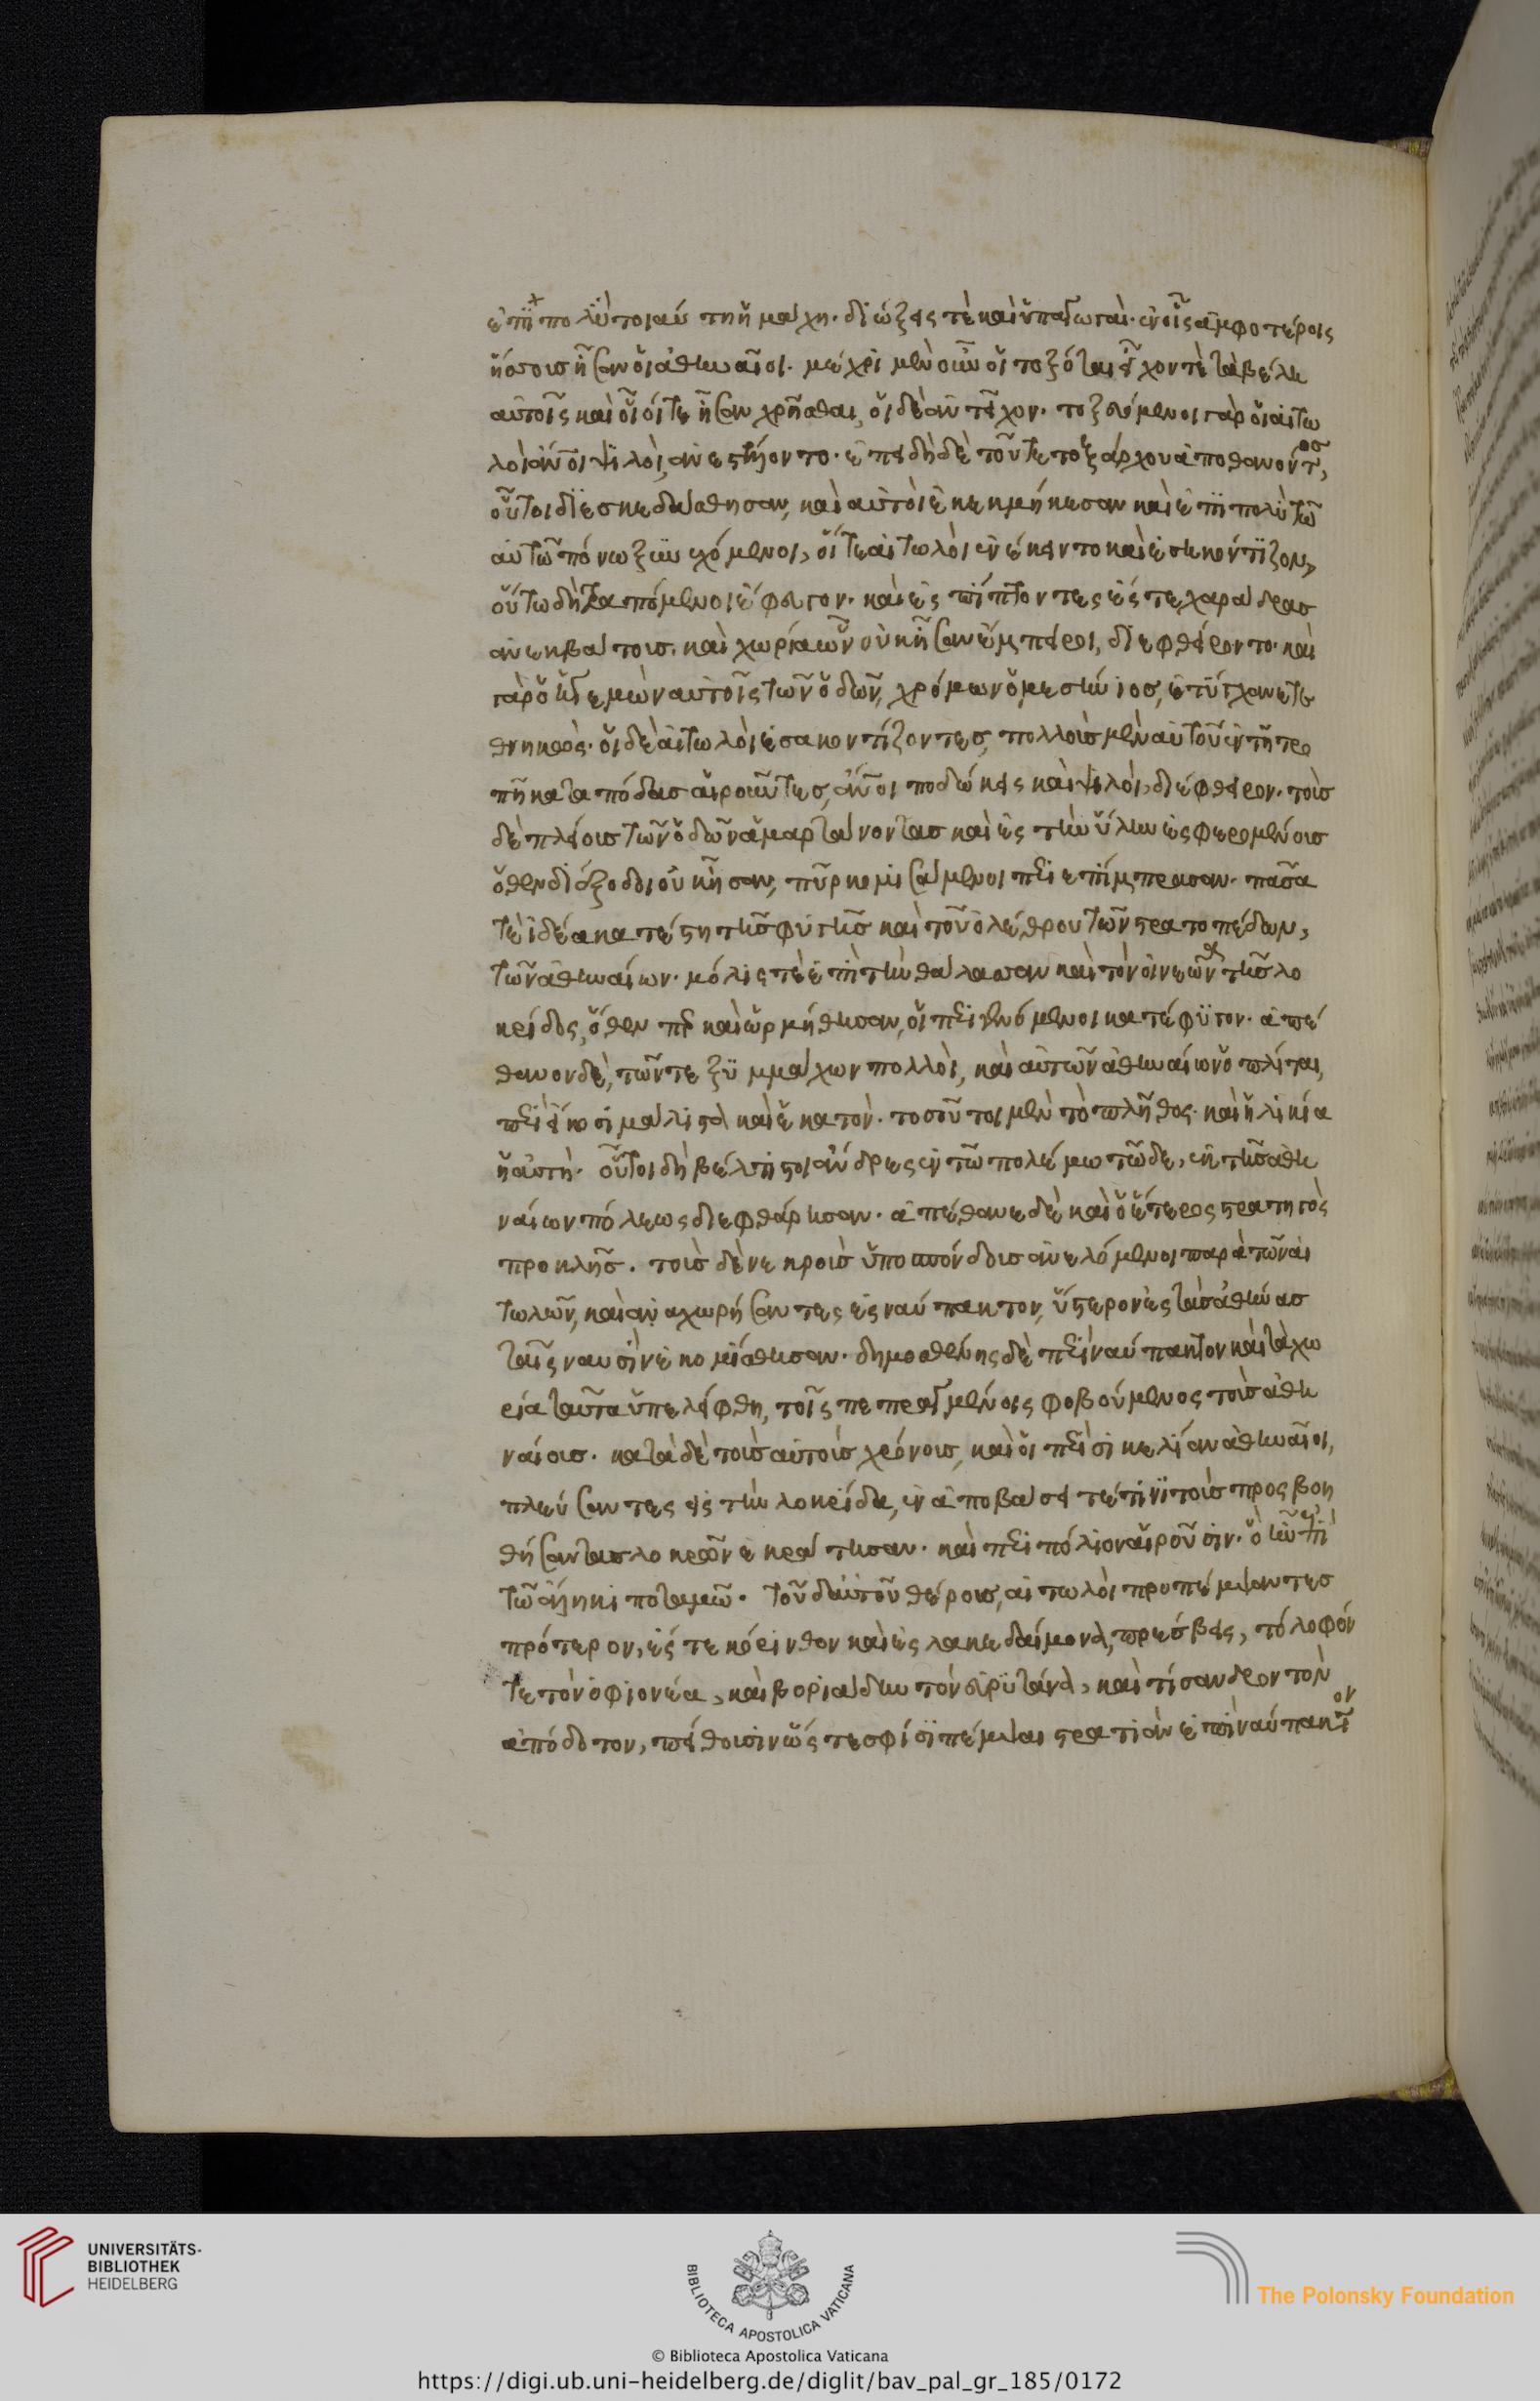 ἐπὶ πολὺ τοιαύτη ἡ μάχη. διώξεις τὲ καὶ ὑπαγωγαί. ἐν οἷς ἀμφοτέροις
ἥσσους ἦσαν οἱ ἀθηναῖοι. μέχρι μὲν οὖν οἱ τοξόται εἶχον τὲ τὰ βέλη
αὐτοῖς καὶ οἷοί τε ἦσαν χρῆσθαι, οἱ δὲ ἀντεῖχον. τοξευόμενοι γὰρ οἱ αἰτω
λοὶ ἄν͂οι ψιλοὶ, ἀνεστέλλοντο. ἐπειδὴ δὲ τοῦ τε τοξάρχου ἀποθανόντος,
οὗτοι διεσκεδάσθησαν, καὶ αὐτοὶ ἐκεκμήκεσαν καὶ ἐπὶ πολὺ τῶ
αὐτῶ πόνω ξυνεχόμενοι, οἵ τε αἰτωλοὶ ἐνέκειντο καὶ ἐσηκόντιζον,
οὕτω δὴ τραπόμενοι ἔφευγον. καὶ ἐσπίπτοντες ἔς τε χαράδρας
ἀνεκβάτους. καὶ χωρία ὧν οὐκ ἦσαν ἔμπειροι, διεφθείροντο. καὶ
γὰρ ὁ ἡγεμὼν αὐτοῖς τῶν ὁδῶν, χρόμων ὁ μεσήνιος, ἐτύγχανε τε
θνηκώς. οἱ δὲ αἰτωλοὶ ἐσακοντίζοντες, πολλοὺς μὲν αὐτοῦ ἐν τῇ τρο
πῇ κατὰ πόδας αἱροῦντες, ἄν͂οι ποδώκεις καὶ ψιλοὶ, διέφθειρον. τοὺς
δὲ πλείους τῶν ὁδῶν ἁμαρτάνοντας καὶ ἐς τὴν ὕλην ἐσφερομένους
ὅθεν διέξοδοι οὐκ ἦσαν, πῦρ κομισάμενοι περιεπίμπρασαν. πᾶσα
τὲ ἰδέα κατέστη τῆς φυγῆς καὶ τοῦ ὀλέθρου τῶ στρατοπέδω,
τῶν ἀθηναίων. μόλις τὲ ἐπὶ τὴν θάλασσαν καὶ τὸν οἰνεῶνα τῆς λο
κρίδος, ὅθεν περ καὶ ὡρμήθησαν, οἱ περιγενόμενοι κατέφυγον. ἀπέ
θανον δὲ, τῶν τε ξυμμάχων πολλοὶ, καὶ αὐτῶν ἀθηναίων ὁπλίται,
περὶ εἴκοσι μάλιστα καὶ ἑκατόν. τοσοῦτοι μὲν τὸ πλῆθος. καὶ ἡλικία
ἡ αὐτή. οὗτοι δὴ βέλτιστοι ἄνδρες ἐν τῶ πολέμω τῶδε, ἐκ τῆς ἀθη
ναίων πόλεως διεφθάρησαν. ἀπέθανε δὲ καὶ ὁ ἕτερος στρατηγὸς
προκλῆς. τοὺς δὲ νεκροὺς ὑποσπόνδους ἀνελόμενοι παρὰ τῶν αἰ
τωλῶν, καὶ ἀναχωρήσαντες ἐς ναύπακτον, ὕστερον ἐς τὰς ἀθήνας
ταῖς ναυσὶν ἐκομίσθησαν. δημοσθένης δὲ περὶ ναύπακτον καὶ τὰ χω
ρία ταῦτα ὑπελείφθη, τοῖς πεπραγμένοις φοβούμενος τοὺς ἀθη
ναίους. κατὰ δὲ τοὺς αὐτοὺς χρόνους, καὶ οἱ περὶ σικελίαν ἀθηναῖοι,
πλεύσαντες εἰς τὴν λοκρίδα, ἐν ἀποβάσει τέ τινι τοὺς προσβοη
θήσαντας λοκρῶν ἐκράτησαν. καὶ περιπόλιον αἱροῦσιν. ὃ ἦν ἐπὶ
τῶ ἄληκι ποταμῶ. τοῦ δ' αὐτοῦ θέρους, αἰτωλοὶ προπέμψαντες
πρότερον, ἔς τε κόρινθον καὶ ἐς λακεδαίμονα, πρέσβεις, τόλοφόν
τε τὸν ὀφιονέα, καὶ βοριάδην τὸν εὐρυτάνα, καὶ τίσανδρον τὸν
ἀπόδοτον, πείθουσιν ὥστε σφίσι πέμψαι στρατιὰν ἐπὶ ναύπακτον
UNIVERSITÄTS-
BIBLIOTHEK
HEIDELBERG
BIBLIOTECA APOSTOLICA VATICANA
The Polonsky Foundation
© Biblioteca Apostolica Vaticana
https://digi.ub.uni-heidelberg.de/diglit/bav_pal_gr_185/0172